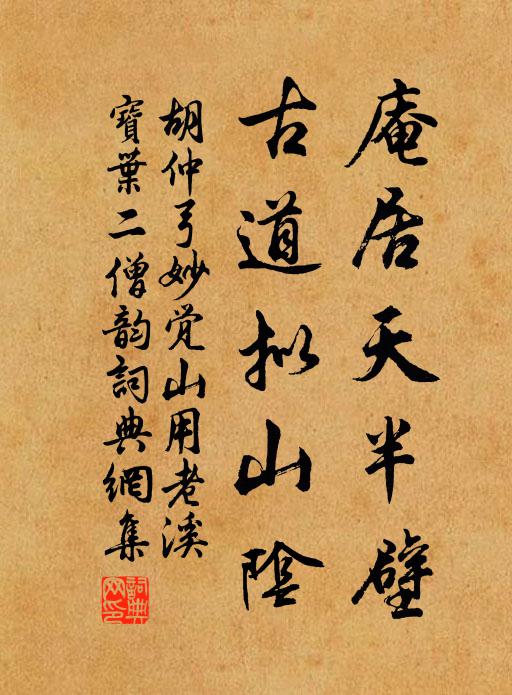 庵居天半壁
古道拟山陰
胡仲弓妙觉山用老溪
寶葉二僧韵詞典網集
詞典網印